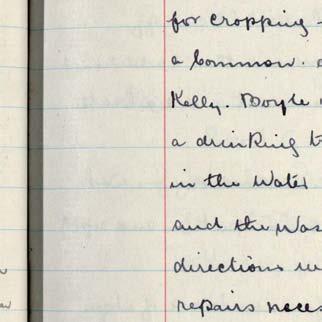 for cropping
a Common.
Kelly. Boyle
a drinking
in the Water
and the Was
directions
repairs neces